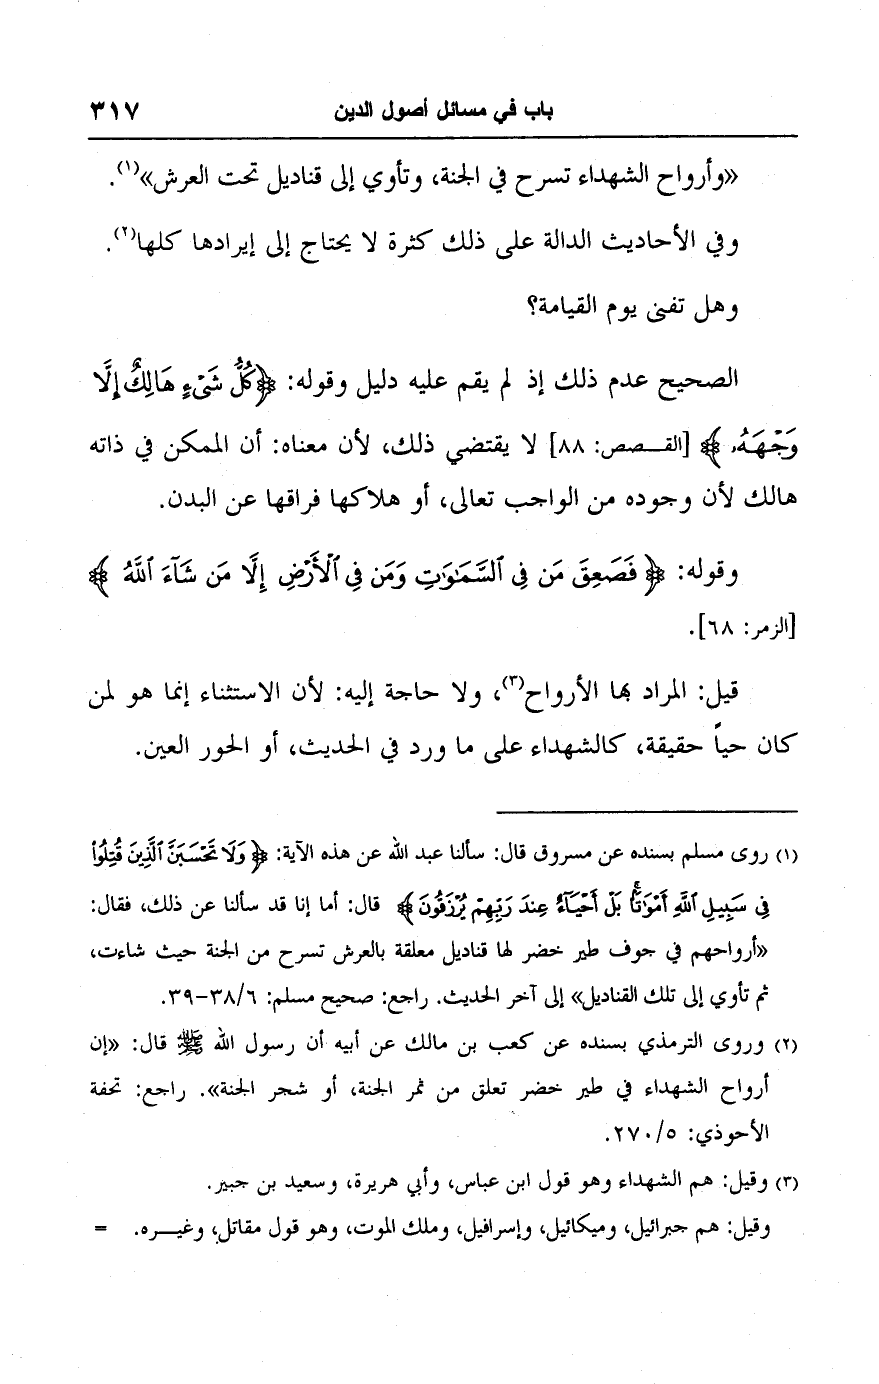 باب في مسائل أصول الدين ٣١٧
«وأرواح الشهداء تسرح في الجنة، وتأوي إلى قناديل تحت العرش»(١).
وفي الأحاديث الدالة على ذلك كثرة لا يحتاج إلى إيرادها كلها(٢).
وهل تفنى يوم القيامة؟
الصحيح عدم ذلك إذ لم يقم عليه دليل وقوله: ﴿كُلُّ شَىْءٍ هَالِكٌ إِلَّا
وَجْهَهُۥ﴾ [القـــصص: ٨٨] لا يقتضي ذلك، لأن معناه: أن الممكن في ذاته
هالك لأن وجوده من الواجب تعالى، أو هلاكها فراقها عن البدن.
وقوله: ﴿فَصَعِقَ مَن فِى ٱلسَّمَٰوَٰتِ وَمَن فِى ٱلْأَرْضِ إِلَّا مَن شَآءَ ٱللَّهُ﴾
[الزمر: ٦٨].
قيل: المراد بها الأرواح(٣)، ولا حاجة إليه: لأن الاستثناء إنما هو لمن
كان حياً حقيقة، كالشهداء على ما ورد في الحديث، أو الحور العين.
(١) روى مسلم بسنده عن مسروق قال: سألنا عبد الله عن هذه الآية: ﴿وَلَا تَحْسَبَنَّ ٱلَّذِينَ قُتِلُوا۟
فِى سَبِيلِ ٱللَّهِ أَمْوَٰتًۢا بَلْ أَحْيَآءٌ عِندَ رَبِّهِمْ يُرْزَقُونَ﴾ قال: أما إنا قد سألنا عن ذلك، فقال:
«أرواحهم في جوف طير خضر لها قناديل معلقة بالعرش تسرح من الجنة حيث شاءت،
ثم تأوي إلى تلك القناديل» إلى آخر الحديث. راجع: صحيح مسلم: ٣٨/٦-٣٩.
(٢) وروى الترمذي بسنده عن كعب بن مالك عن أبيه أن رسول الله ﷺ قال: «إن
أرواح الشهداء في طير خضر تعلق من ثمر الجنة، أو شجر الجنة». راجع: تحفة
الأحوذي: ٢٧٠/٥.
(٣) وقيل: هم الشهداء وهو قول ابن عباس، وأبي هريرة، وسعيد بن جبير.
وقيل: هم جبرائيل، وميكائيل، وإسرافيل، وملك الموت، وهو قول مقاتل، وغيـــره. =